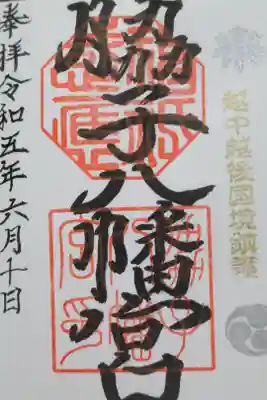 越中越後国境鎮護
脇子八幡宮
奉拝令和五年六月十日